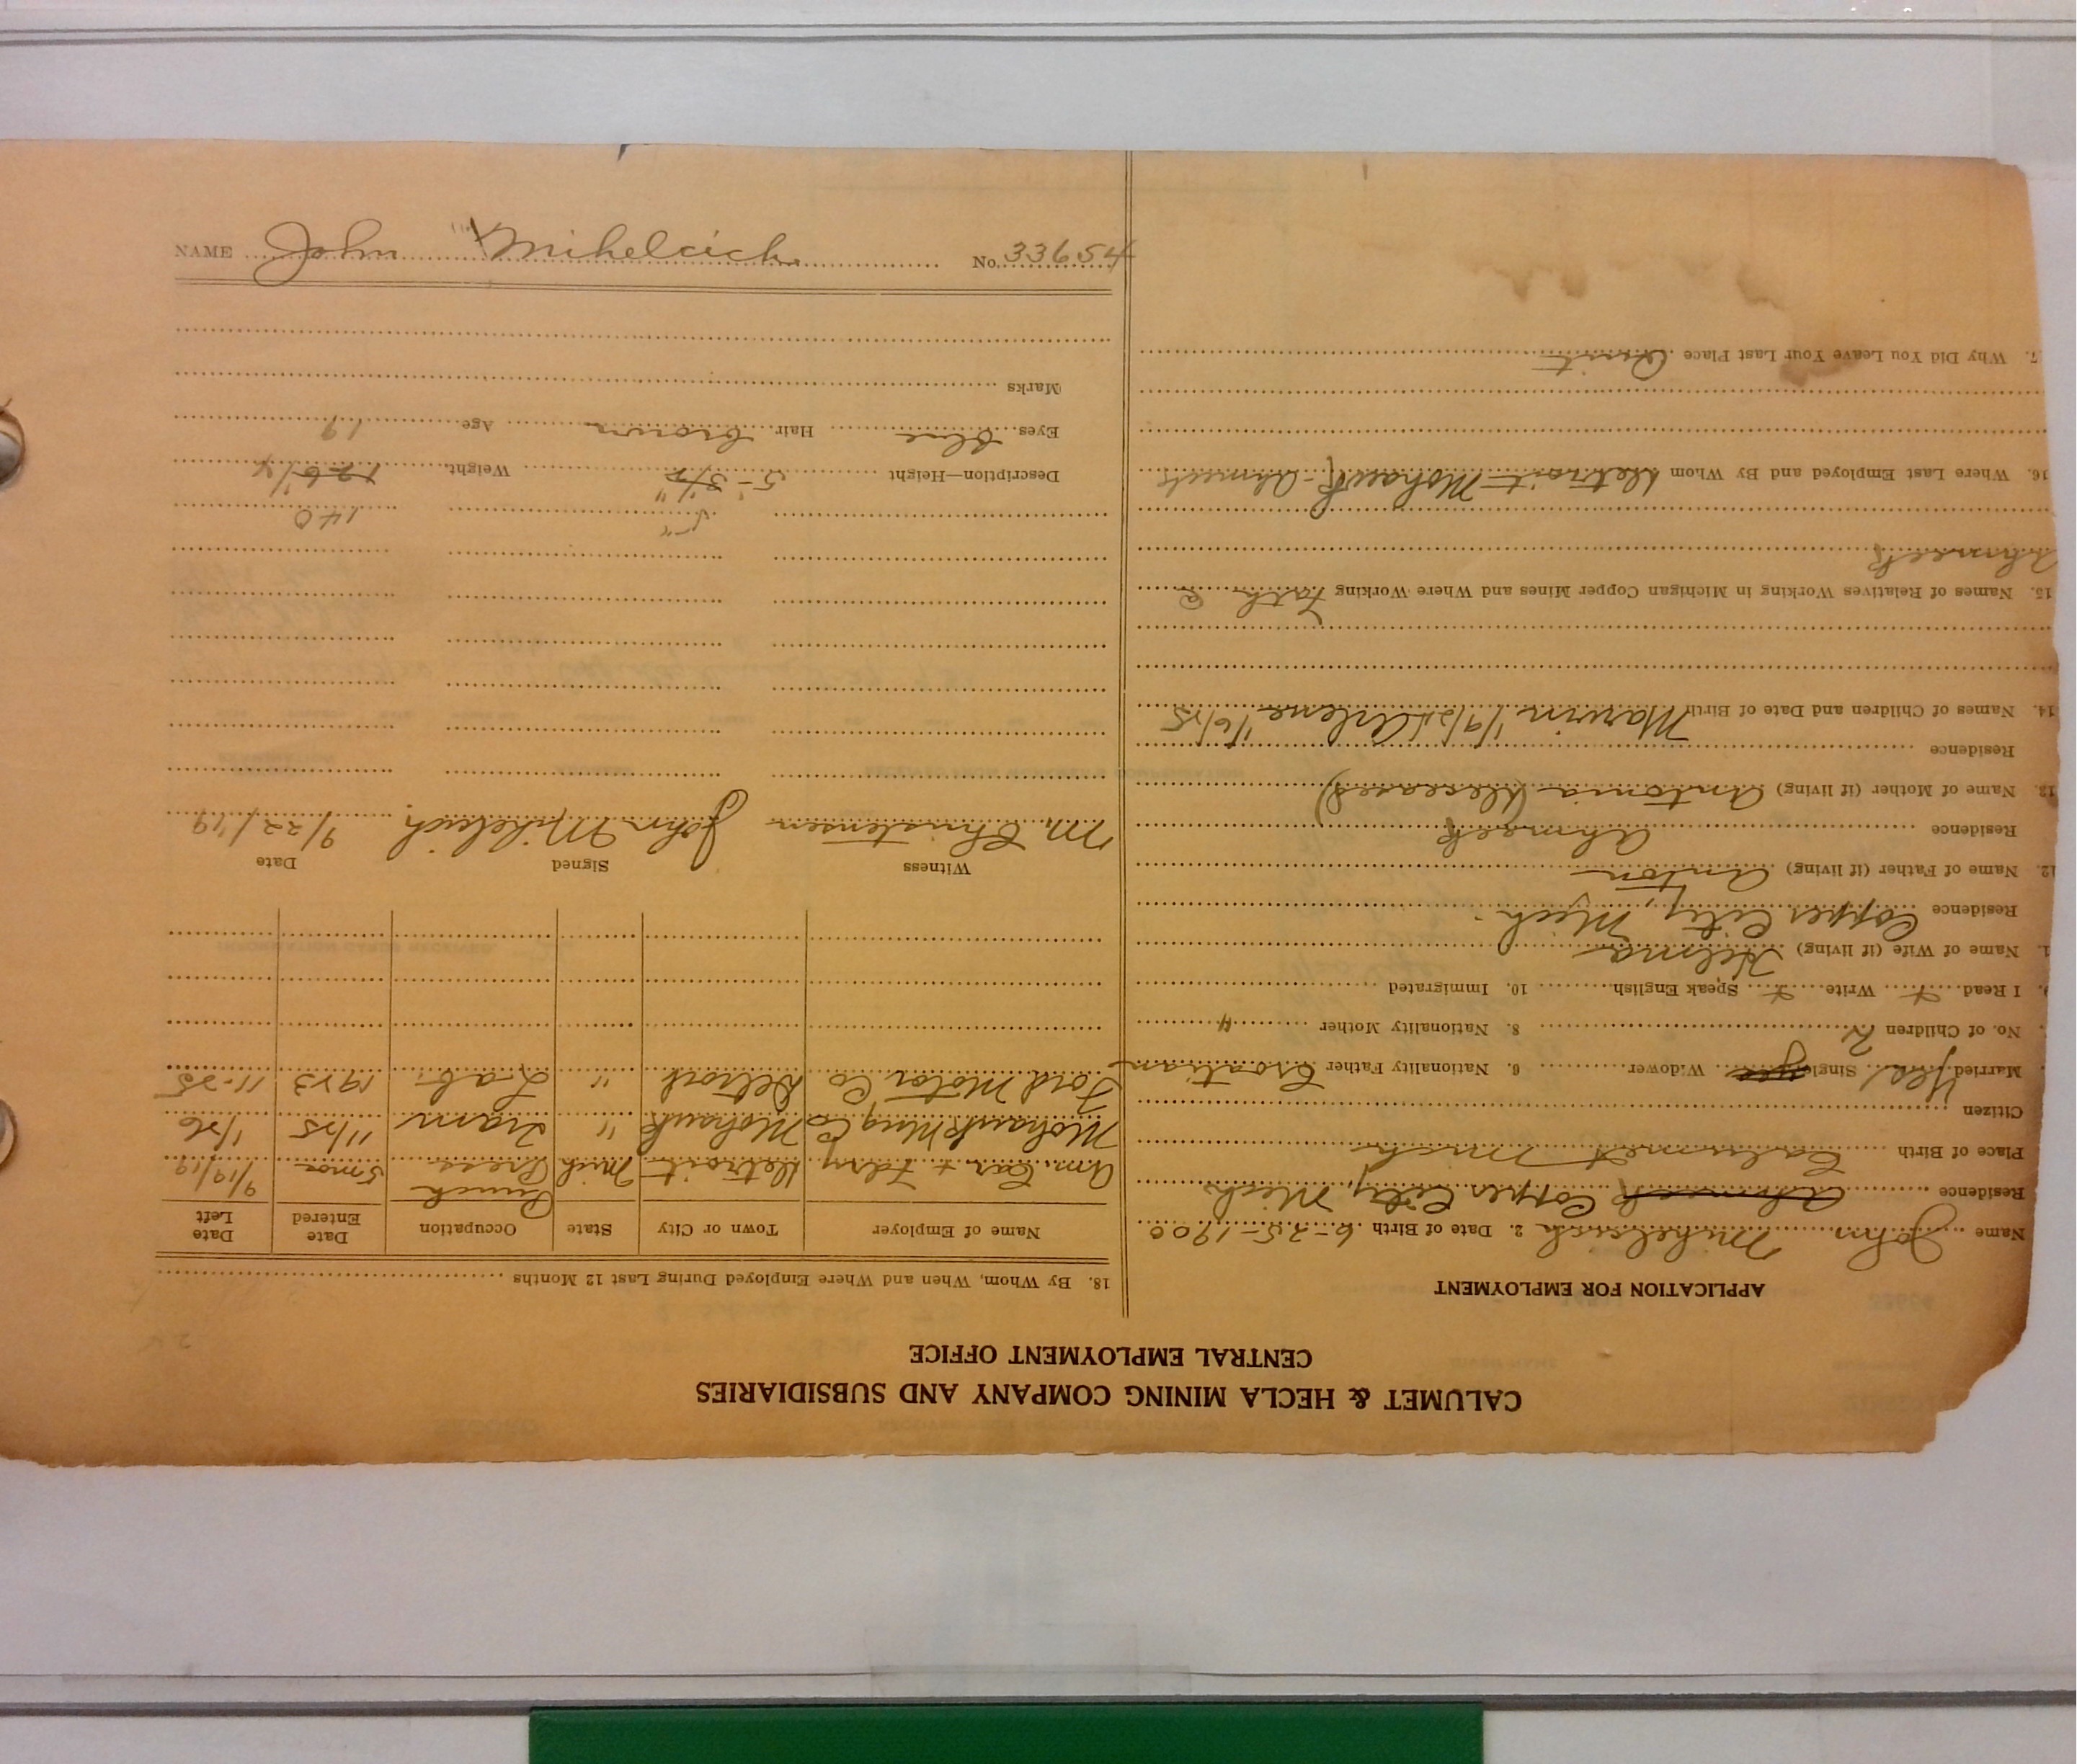 CALUMET & HECLA MINING COMPANY AND SUBSIDIARIES
CENTRAL EMPLOYMENT OFFICE
APPLICATION FOR EMPLOYMENT
Name John Mihelcich 2. Date of Birth 6-25-1900
Residence Ahmeek Copper City, Mich
Place of Birth Calumet Mich
Citizen
Married Yes Single yes Widower 6. Nationality Father Croatian
No. of Children 2 8. Nationality Mother "
9. I Read + Write + Speak English 10. Immigrated
1. Name of Wife (if living) Helma
Residence Copper City, Mich.
12. Name of Father (if living) Anton
Residence Ahmeek
13. Name of Mother (if living) Antonia (deceased)
Residence
14. Names of Children and Date of Birth Marvin 1/9/24 Arlene 1/6/25
15. Names of Relatives Working in Michigan Copper Mines and Where Working Fath @
Ahmeek
16. Where Last Employed and By Whom Detroit Mohawk-Ahmeek
7. Why Did You Leave Your Last Place Quit
18. By Whom, When and Where Employed During Last 12 Months
Name of Employer Town or City State Occupation Date Entered Date Left
Am. Car & Fdry Detroit Mich Punch Press 5 mos 9/19/19
Mohawk Mng Co Mohawk " Tram 11/25 1/26
Ford Motor Co Detroit " Lab. 1923 11-25
Witness Signed Date
M. Christensen John Mihelcich 9/22/19
5" 140
Description—Height 5-3 1/2" Weight 126 1/4
Eyes Blue Hair Brown Age 19
Marks
NAME John Mihelcich No. 33654